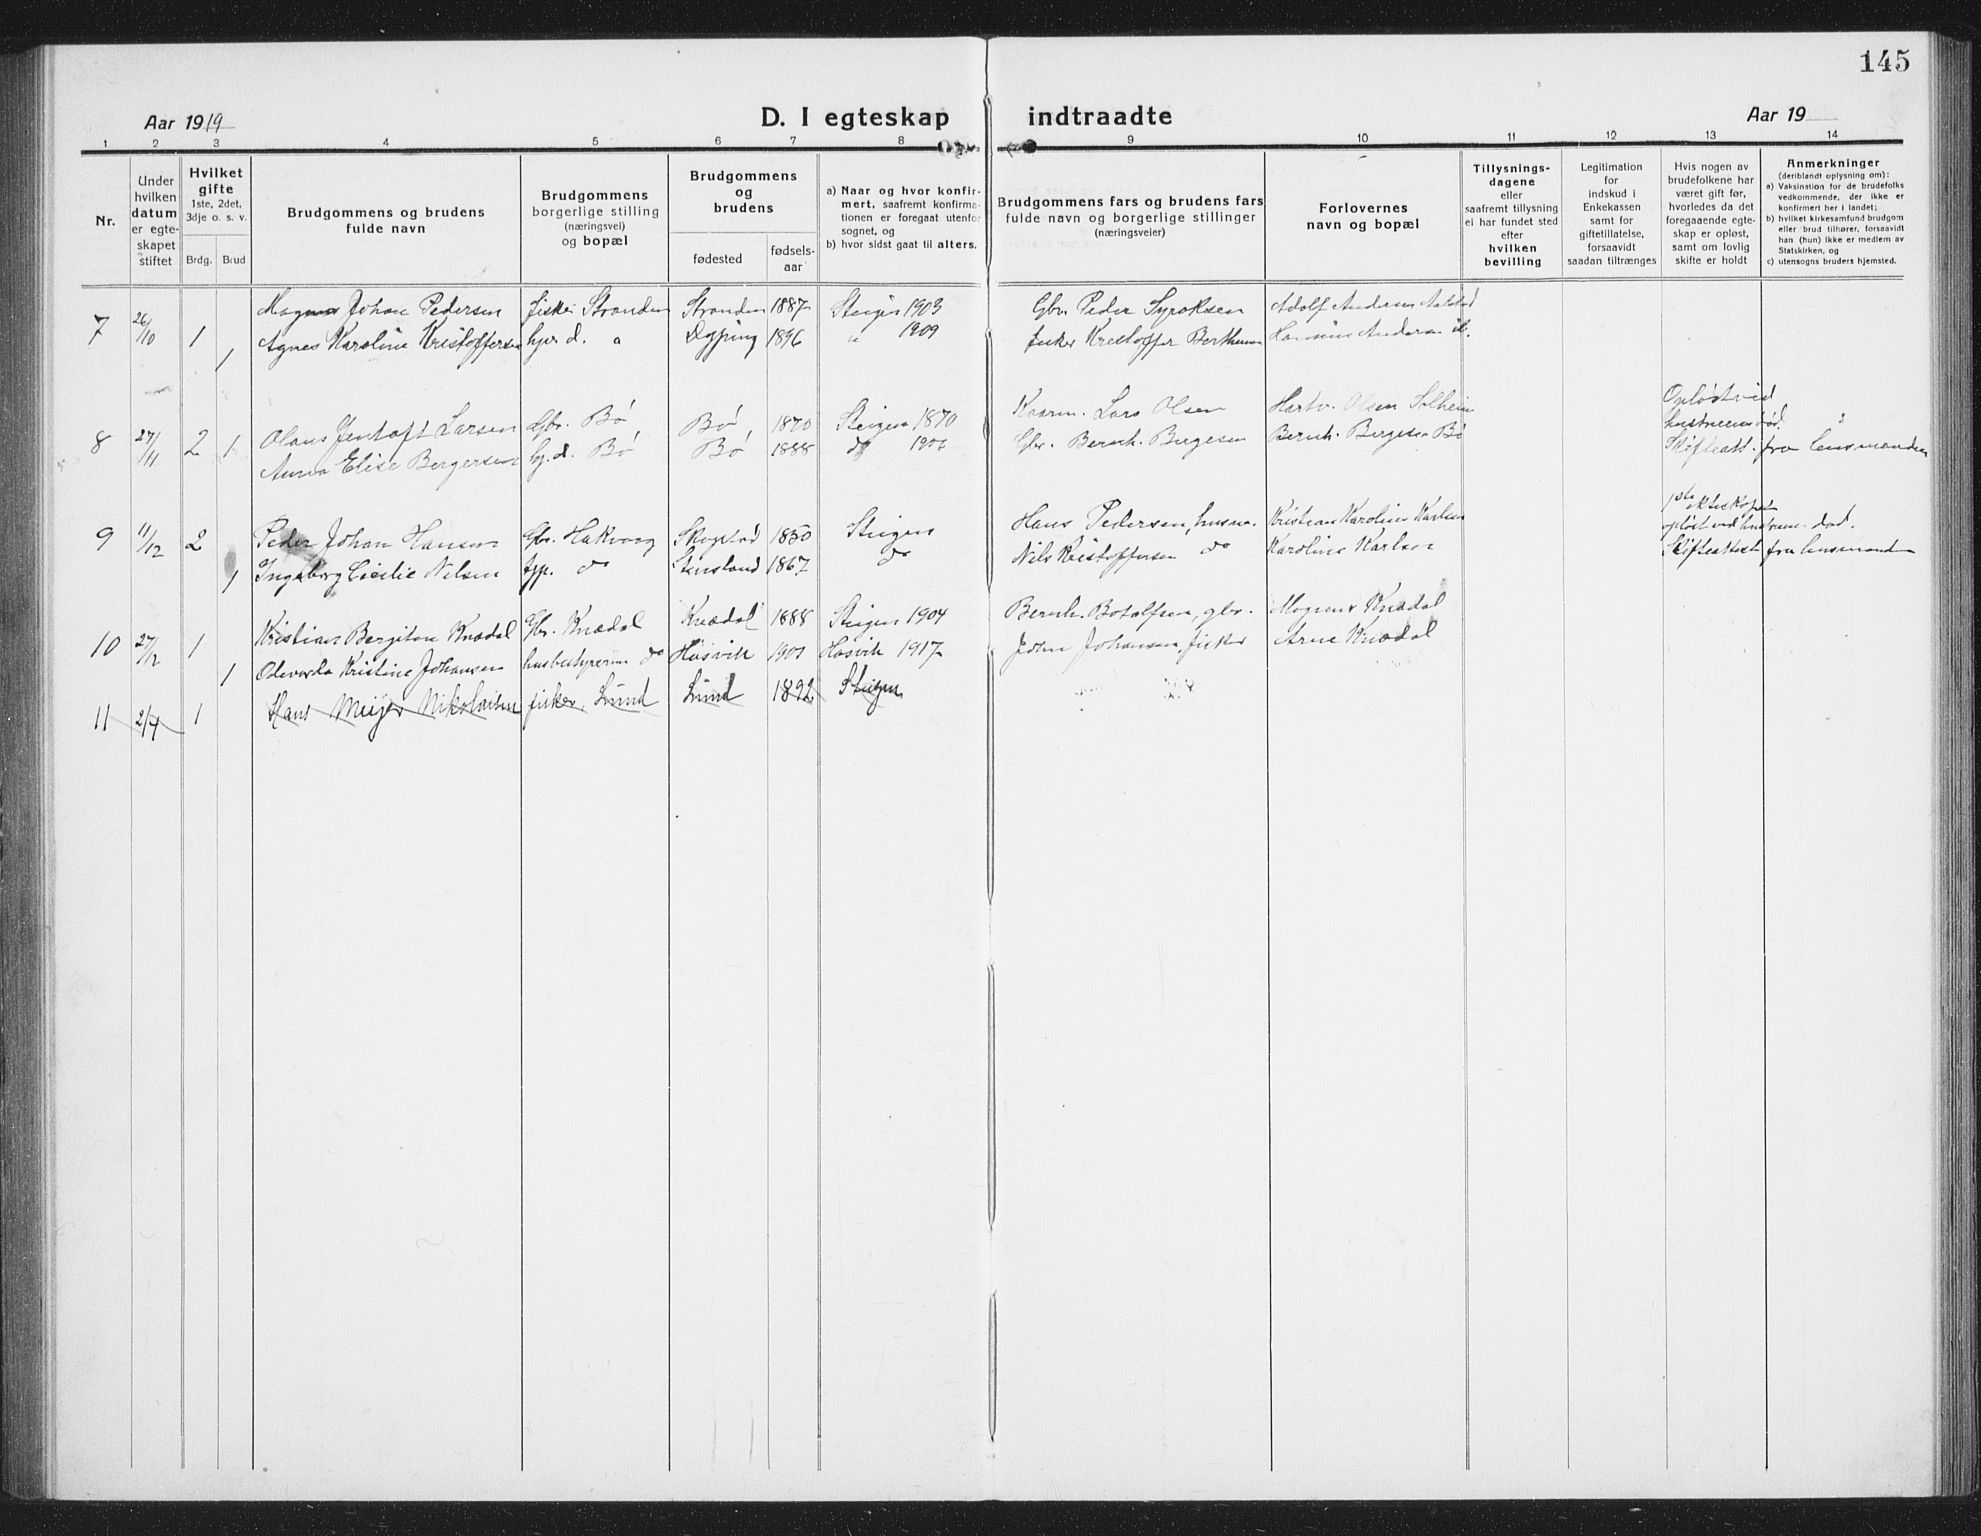 145
Aar 1919
D. I egteskap indtraadte
Aar 19
1 2 3 4 5 6 7 8 9 10 11 12 13 14
Nr.
Under hvilken datum er egte-skapet stiftet
Hvilket gifte
1ste, 2det, 3dje o. s. v.
Brdg. Brud
Brudgommens og brudens fulde navn
Brudgommens borgerlige stilling (næringsvei) og bopæl
Brudgommens og brudens
fødested
fødsels-aar
a) Naar og hvor konfir-mert, saafremt konfirma-tionen er foregaat utenfor sognet, og
b) hvor sidst gaat til alters.
Brudgommens fars og brudens fars fulde navn og borgerlige stillinger (næringsveier)
Forlovernes navn og bopæl
Tillysnings-dagene eller saafremt tillysning ei har fundet sted efter hvilken bevilling
Legitimation for indskud i Enkekassen samt for giftetillatelse, forsaavidt saadan tiltrænges
Hvis nogen av brudefolkene har været gift før, hvorledes da det foregaaende egte-skap er opløst, samt om lovlig skifte er holdt
Anmerkninger (deriblandt oplysning om):
a) Vaksination for de brudefolks vedkommende, der ikke er konfirmert her i landet;
b) hvilket kirkesamfund brudgom eller brud tilhører, forsaavidt han (hun) ikke er medlem av Statskirken, og
c) utensogns bruders hjemsted.
7 26/10 1 Magnus Johan Pedersen fisker Stranden Stranden 1887 Steigen 1903 Gbr. Peder Adolf Andersen
1 Agnes Karoline Kristoffersen d. " 1896 " 1909 fisker Kristoffer Andersen
8 27/11 2 1 Olaus Jentoft Larsen Gbr. Bø Bø 1870 Steigen 1870 Lars Olsen Hartv. Olsen Solheim Opløst ved hustruens død.
Anna Elise Bergersen d. Bø Bø 1888 do Gbr. Bernh. Bergesen Bernh. Bergesen Bø Skifteatt. fra lensmanden
9 11/12 2 Peder Johan Hansen Gbr. Hakvaag 1850 Steigen Hans Pedersen, husm. Kristian Karolius Karlsen 1ste
opløst ved hustruens død.
1 Ingeborg Cecilie Nilsen do 1867 do Nils Kristoffersen do Karoline Karlsen Skifteattest fra lensmanden
10 27/12 1 Kristian Bergiton Knædal Gbr. Knædal Knædal 1888 Steigen 1904 Bernh. Botolfsen, gbr. Magnus Knædal
1 Kristine Johansen husbestyrerinne do Hasvik Hasvik 1917 John Johansen, fisker Arne Knædal
11 2/4 1 Hans Meijer Nikolaisen fisker Lund Lund 1892 Steigen